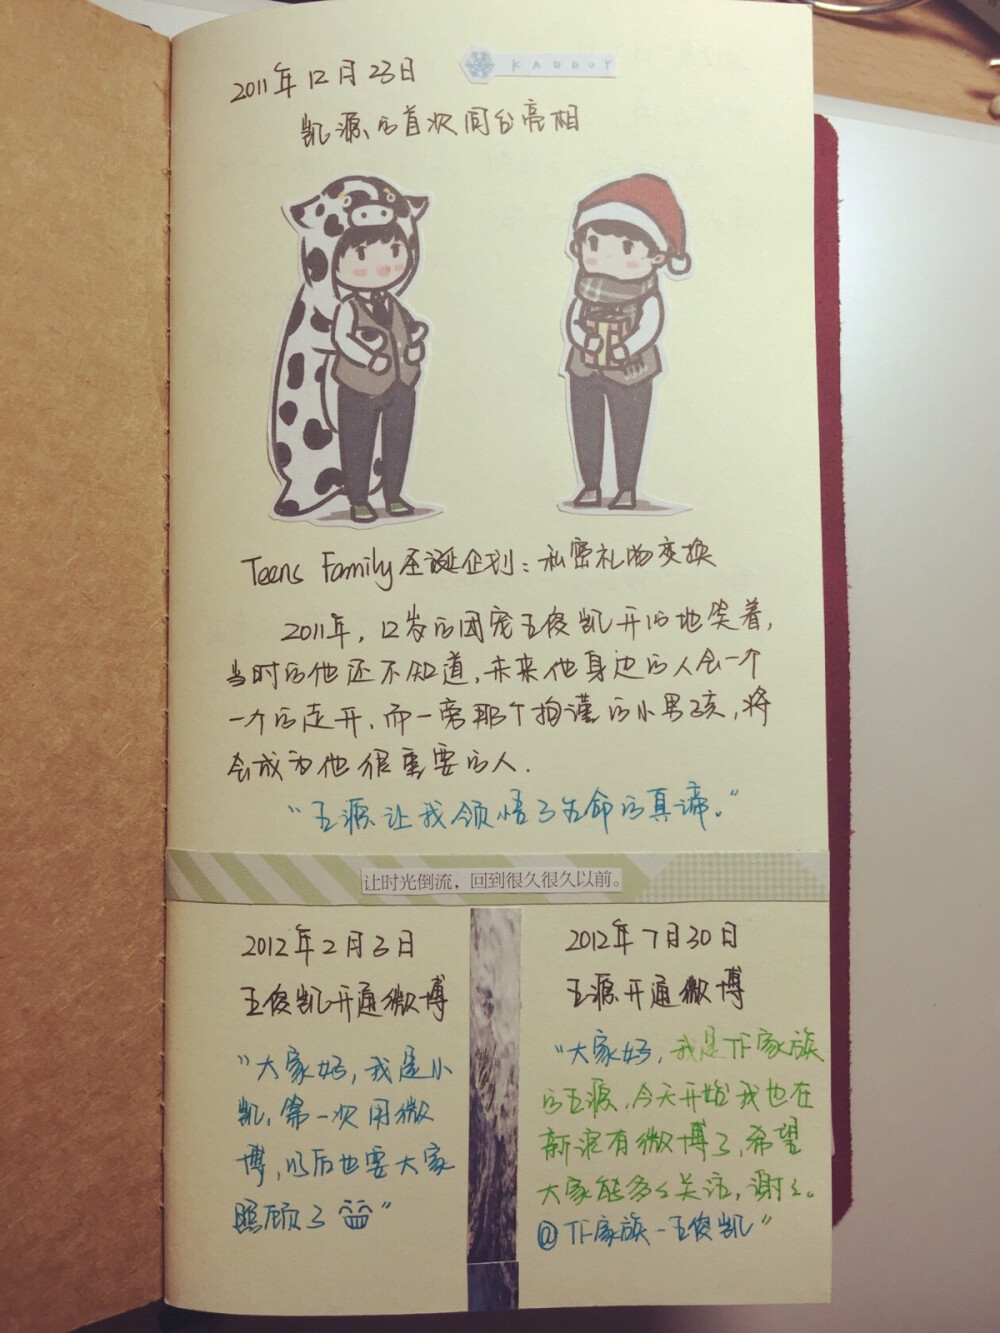 2011年12月23日
KARROY
凯源的首次同台亮相
Teens Family圣诞企划：私密礼物交换
2011年，12岁的团宠王俊凯开心地笑着，
当时的他还不知道，未来他身边的人会一个
一个的走开，而一旁那个拘谨的小男孩，将
会成为他很重要的人.
“王源让我领悟了生命的真谛。”
让时光倒流，回到很久很久以前。
2012年2月3日
王俊凯开通微博
“大家好，我是小
凯，第一次用微
博，以后也要大家
照顾了”
2012年7月30日
王源开通微博
“大家好，我是TF家族
的王源，今天开始我也在
新浪有微博了，希望
大家能多多关注，谢谢。
@TF家族-王俊凯”